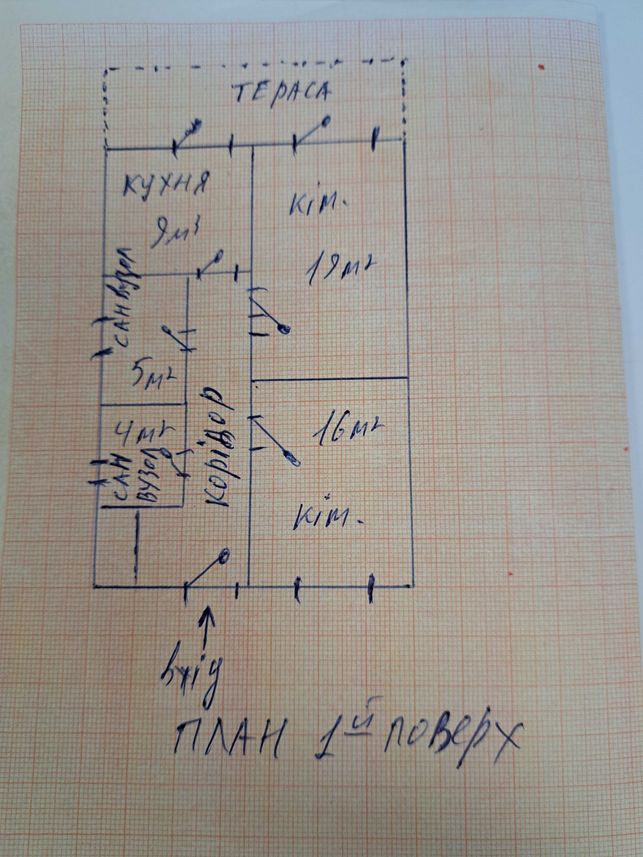 ТЕРАСА
КУХНЯ
9м³
кім.
19м²
САНВУЗОЛ
5м²
4м²
САН
ВУЗОЛ
КОРІДОР
16м²
кім.
вхід
ПЛАН 1ий поверх